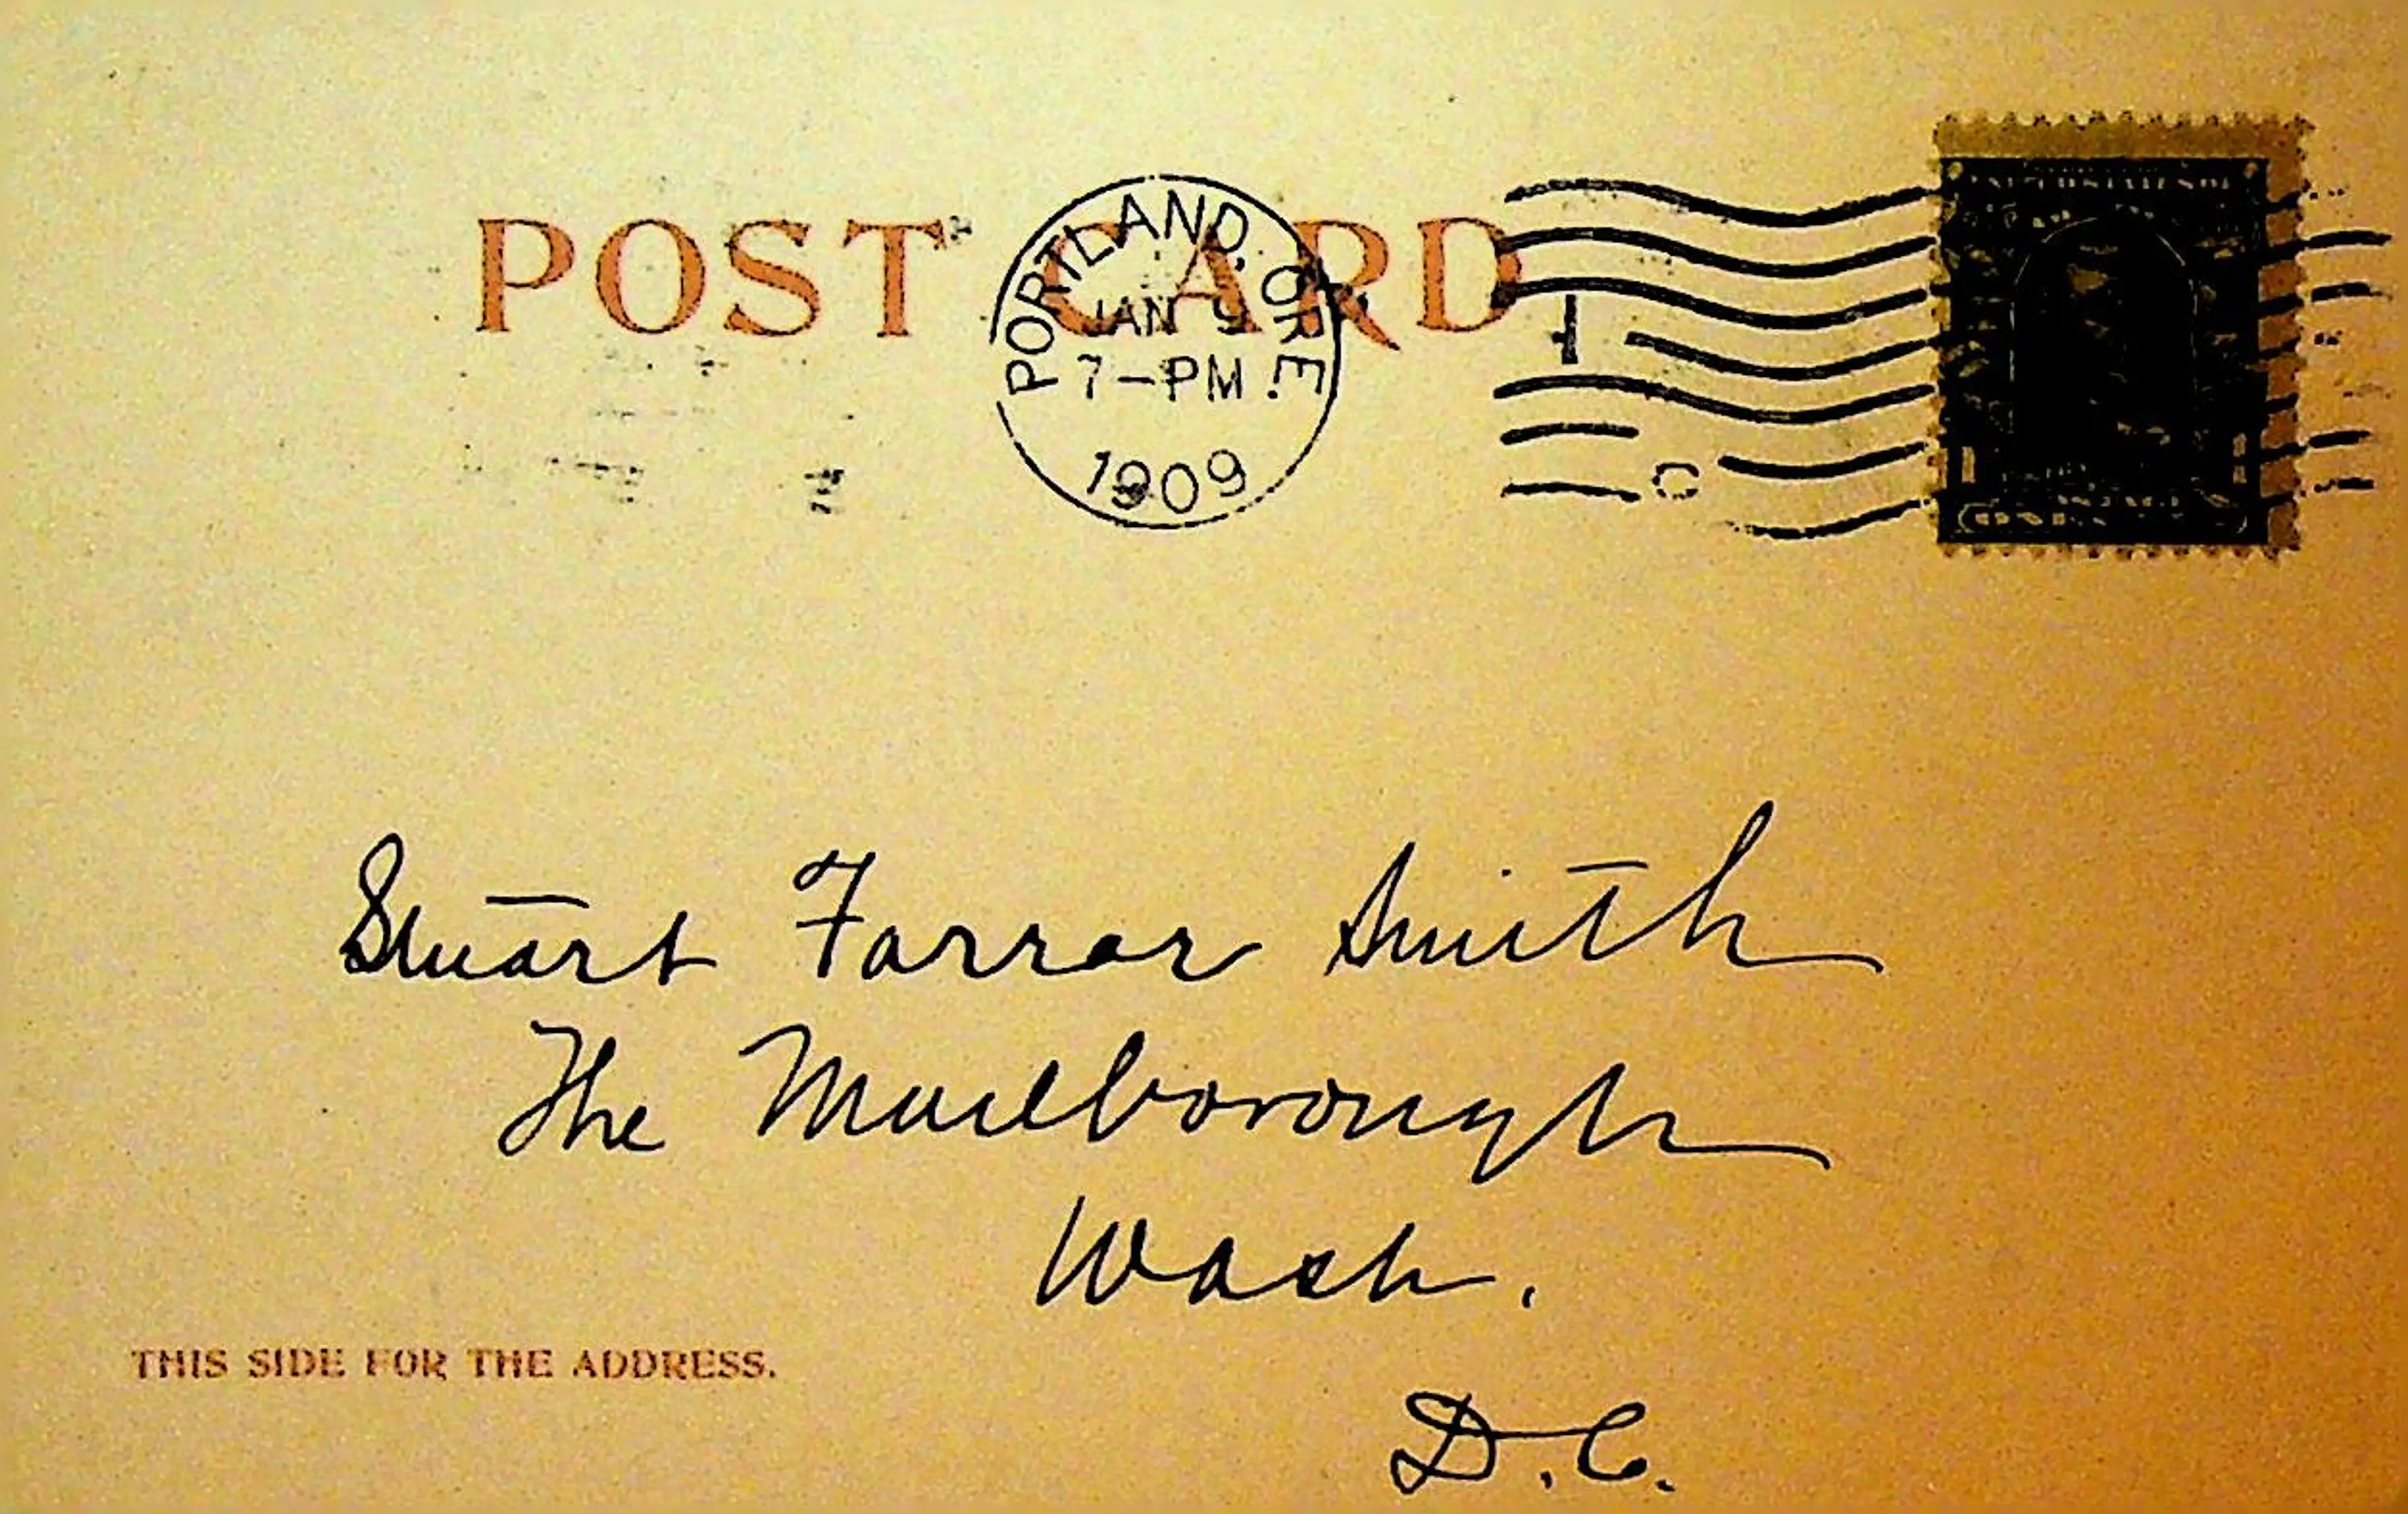 POST CARD
PORTLAND, ORE.
JAN 9
7-PM
1909
Stuart Farrar Smith
The Marlborough
Wash.
D.C.
THIS SIDE FOR THE ADDRESS.